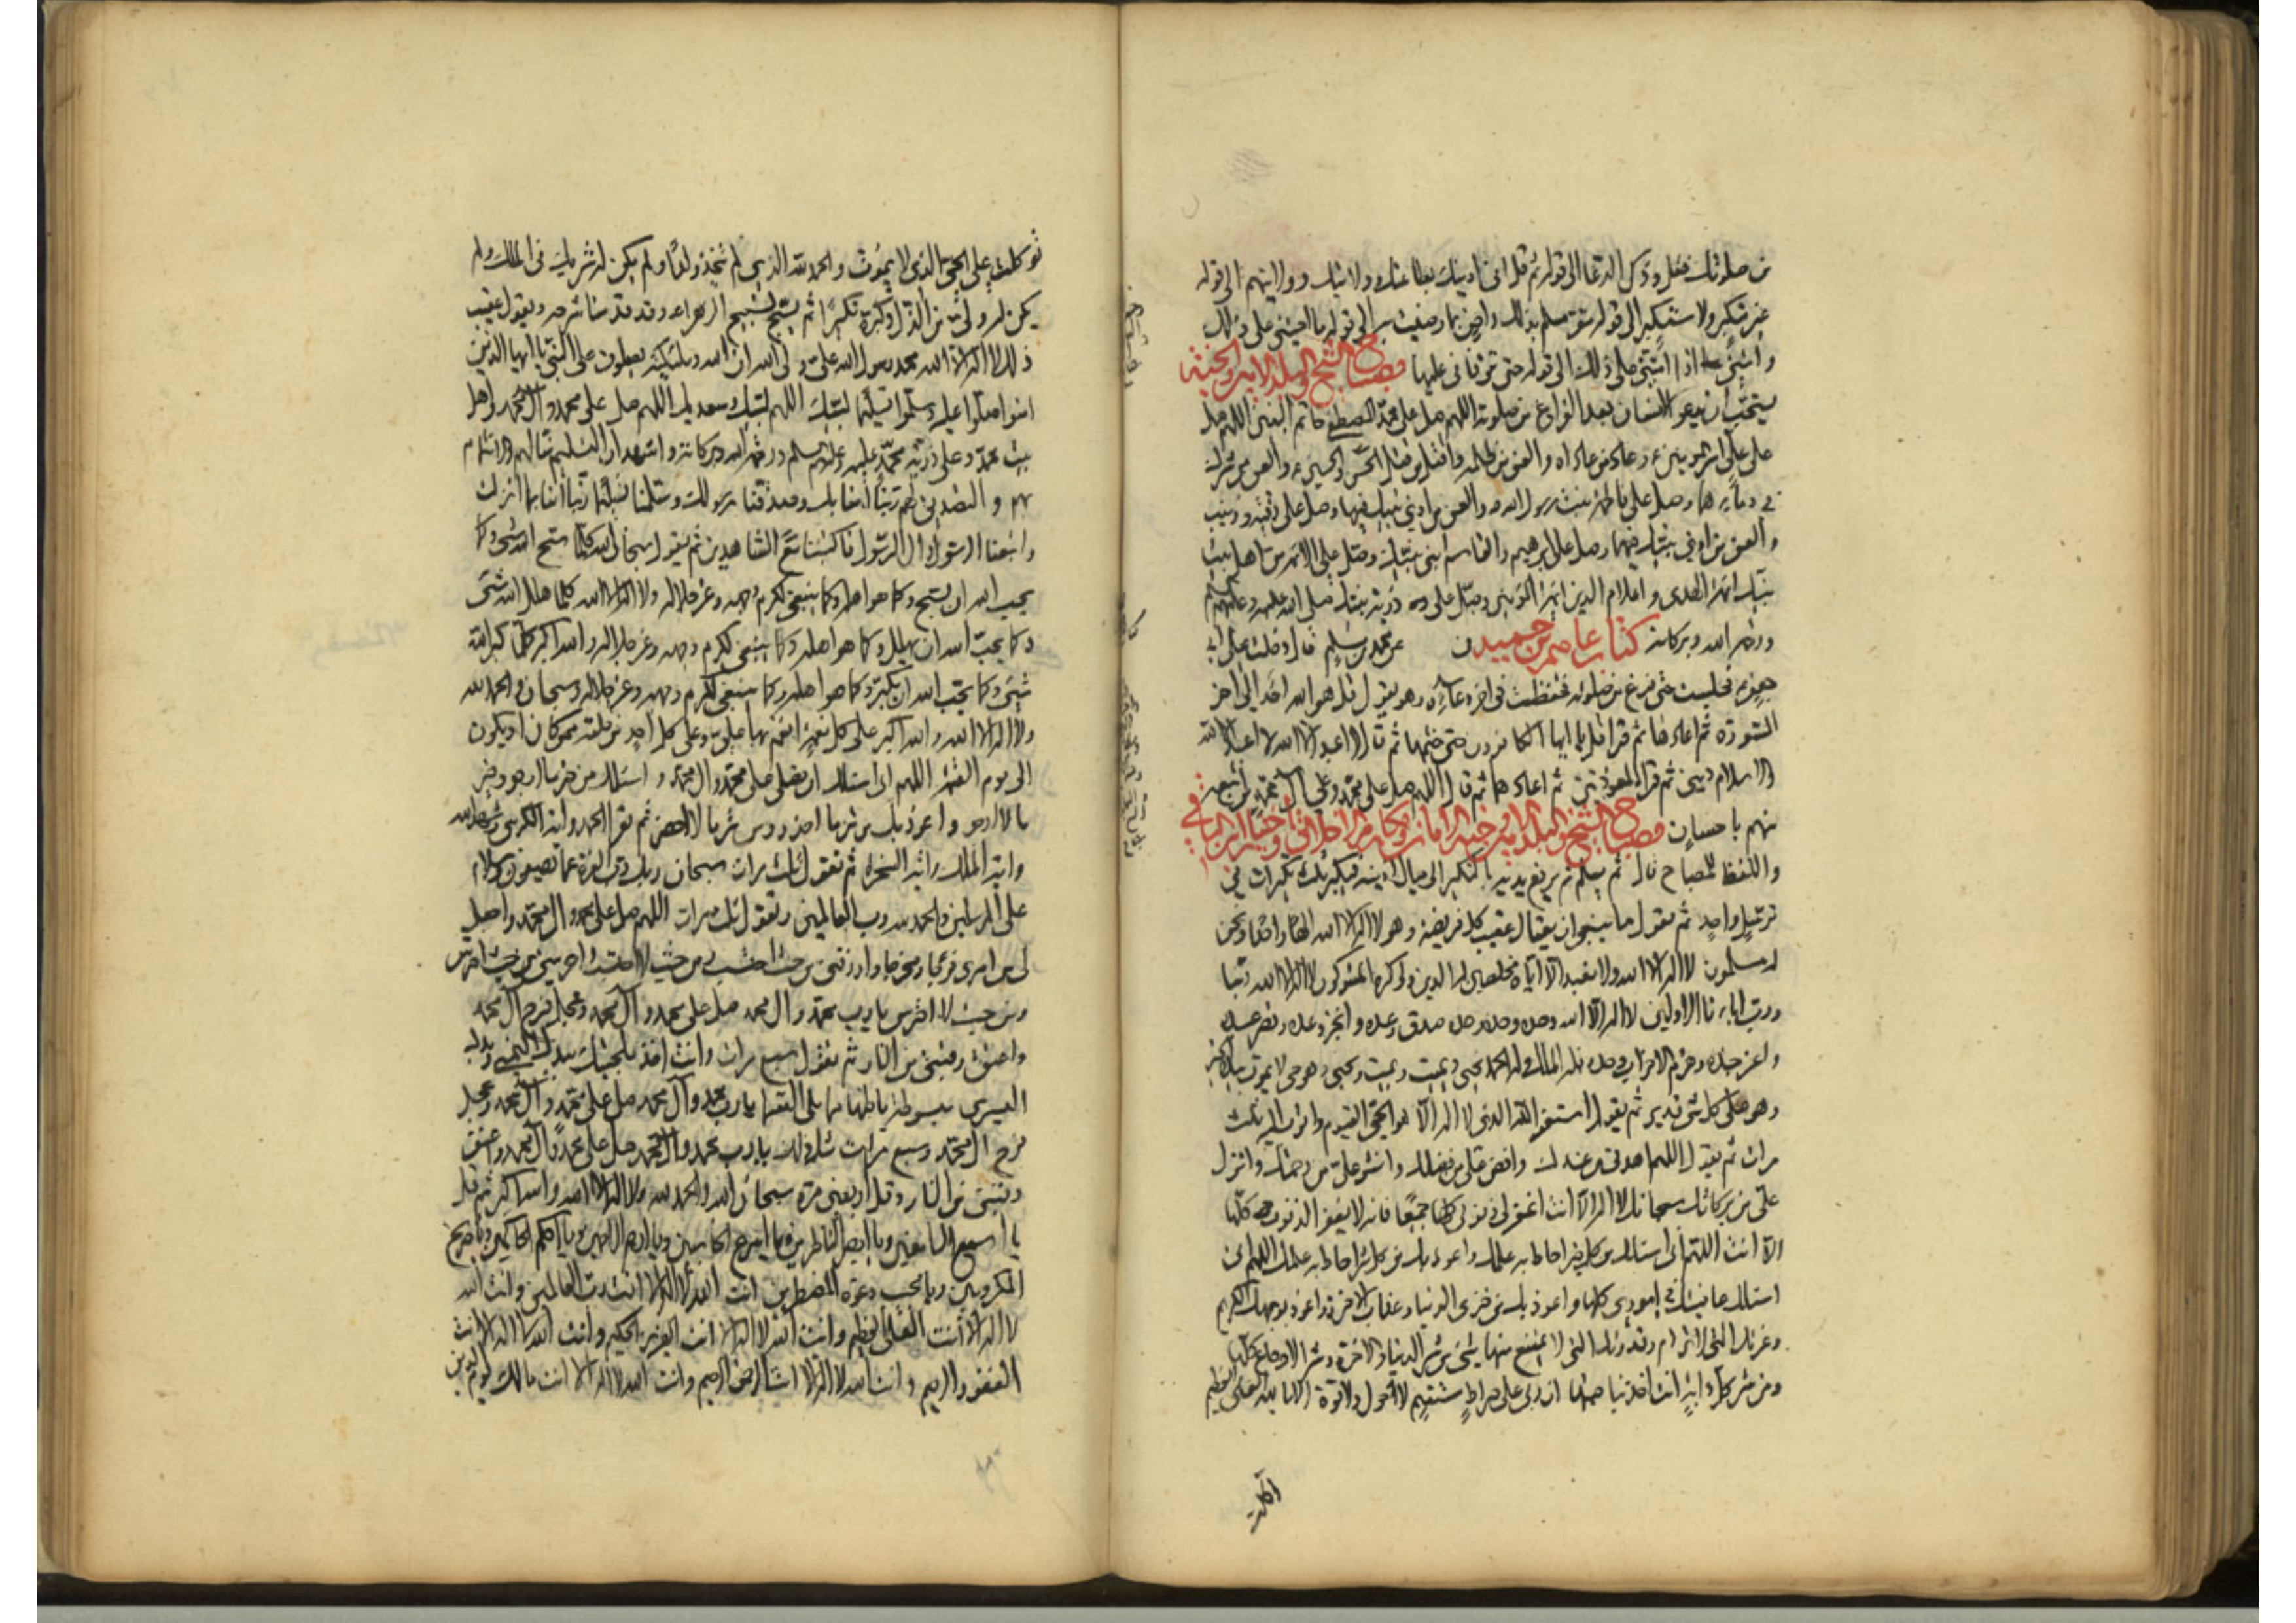 من صلوتك فقل وذكر الدعا الى قوله ثم قل انى ادينك بطاعتك وولايتك وولايتهم الى قوله
غير متكبر ولا مستكبر الى قوله مسلم بذلك راض بما رضيت به الى قوله ما احييتنى على ذلك
وامتنى اذا امتنى على ذلك الى قوله حتى توفانى عليها مصباح الشيخ والبلد الامين والجنة
يستحب ان يدعو الانسان بعد الفراغ من صلوته اللهم صل على محمد المصطفى خاتم النبيين اللهم صل
على على امير المؤمنين وعاد من عاداه والعن من ظلمه واقتل من قتل الحسن والحسين والعن من شرك
فى دمائهما وصل على فاطمة بنت رسول الله والعن من اذى نبيك فيها وصل على رقية وزينب
والعن من اذى نبيك فيهما وصل على ابرهيم والقاسم ابنى نبيك وصل على الائمة من اهل بيت
نبيك ائمة الهدى واعلام الدين ائمة المؤمنين وصل على ذرية نبيك صلى الله عليه وعليهم السلم
ورحمة الله وبركاته كتاب عاصم بن حميد عن محمد بن مسلم قال دخلت على ابى
جعفر فجلست حتى فرغ من صلوته فحفظت فى اخر دعائه وهو يقول قل هو الله احد الى اخر
السورة ثم اعادها ثم قرا قل يا ايها الكافرون حتى ختمها ثم قال لا اعبد الا الله لا اعبد الا الله
والاسلام دينى ثم قرا المعوذتين ثم اعادهما ثم قال اللهم صل على محمد وعلى آل محمد من اتبعه
منهم باحسان مصباح الشيخ والبلد الامين وجنة الامان ومكارم الاخلاق واختيار ابن الباقى
واللفظ للمصباح قال ثم يسلم ثم يرفع يديه بالتكبير الى حيال اذنيه فيكبر ثلث تكبيرات فى
ترسل واحد ثم يقول ما ينبغى ان يقال عقيب كل فريضة وهو لا اله الا الله الها واحدا ونحن
له مسلمون لا اله الا الله ولا نعبد الا اياه مخلصين له الدين ولو كره المشركون لا اله الا الله ربنا
ورب ابائنا الاولين لا اله الا الله وحده وحده وحده صدق وعده وانجز وعده ونصر عبده
واعز جنده وهزم الاحزاب وحده فله الملك وله الحمد يحيى ويميت ويميت ويحيى وهو حى لا يموت بيده الخير
وهو على كل شئ قدير ثم يقول استغفر الله الذى لا اله الا هو الحى القيوم واتوب اليه ثلث
مرات ثم يقول اللهم اهدنى من عندك وافض على من فضلك وانشر على من رحمتك وانزل
على من بركاتك سبحانك لا اله الا انت اغفر لى ذنوبى كلها جميعا فانه لا يغفر الذنوب كلها
الا انت اللهم انى اسئلك من كل خير احاط به علمك واعوذ بك من كل شر احاط به علمك اللهم انى
اسئلك عافيتك فى امورى كلها واعوذ بك من خزى الدنيا وعذاب الاخرة واعوذ بوجهك الكريم
وعزتك التى لا ترام وقدرتك التى لا يمتنع منها شئ من شر الدنيا والاخرة وشر الاوجاع كلها
ومن شر كل دابة انت اخذ بناصيتها ان ربى على صراط مستقيم لا حول ولا قوة الا بالله العلى العظيم
توكلت على الحى الذى لا يموت والحمد لله الذى لم يتخذ ولدا ولم يكن له شريك فى الملك ولم
يكن له ولى من الذل وكبره تكبيرا ثم يسبح تسبيح الزهراء وقد قدمنا شرحه ويقول عقيب
ذلك لا اله الا الله محمد رسول الله على ولى الله ان الله وملئكته يصلون على النبى يا ايها الذين
امنوا صلوا عليه وسلموا تسليما لبيك اللهم لبيك وسعديك اللهم صل على محمد وآل محمد واهل
بيت محمد وعلى ذرية محمد عليه وعليهم السلم ورحمة الله وبركاته واشهد ان التسليم منا لهم والائتمام
بهم والتصديق لهم ربنا آمنا بك وصدقنا رسولك وسلمنا تسليما ربنا آمنا بما انزلت
واتبعنا الرسول وآل الرسول فاكتبنا مع الشاهدين ثم يقول سبحان الله كلما سبح الله شئ وكما
يحب الله ان يسبح وكما هو اهله وكما ينبغى لكرم وجهه وعز جلاله ولا اله الا الله كلما هلل الله شئ
وكما يحب الله ان يهلل وكما هو اهله وكما ينبغى لكرم وجهه وعز جلاله والله اكبر كلما كبر الله
شئ وكما يحب الله ان يكبر وكما هو اهله وكما ينبغى لكرم وجهه وعز جلاله وسبحان الله والحمد لله
ولا اله الا الله والله اكبر على كل نعمة انعم بها على وعلى كل احد من خلقه ممن كان او يكون
الى يوم القيمة اللهم انى اسئلك ان تصلى على محمد وآل محمد واسئلك من خير ما ارجو وخير
ما لا ارجو واعوذ بك من شر ما احذر ومن شر ما لا احذر ثم تقرا الحمد واية الكرسى وشهد الله
واية الملك واية السخرة ثم تقول ثلث مرات سبحان ربك رب العزة عما يصفون وسلام
على المرسلين والحمد لله رب العالمين وتقول ثلث مرات اللهم صل على محمد وآل محمد واجعل
لى من امرى فرجا ومخرجا وارزقنى من حيث احتسب ومن حيث لا احتسب واحرسنى من حيث احترس
ومن حيث لا احترس يا رب محمد وآل محمد صل على محمد وآل محمد وعجل فرج آل محمد
واعتق رقبتى من النار ثم تقول سبع مرات وانت اخذ بلحيتك بيدك اليمنى ويدك
اليسرى مبسوطة باطنها مما يلى السماء يا رب محمد وآل محمد صل على محمد وآل محمد وعجل
فرج آل محمد وسبع مرات مثل ذلك يا رب محمد وآل محمد صل على محمد وآل محمد واعتق
رقبتى من النار وقل اربعين مرة سبحان الله والحمد لله ولا اله الا الله والله اكبر ثم قل
يا اسمع السامعين ويا ابصر الناظرين ويا اسرع الحاسبين ويا ارحم الراحمين ويا احكم الحاكمين ويا صريخ
المكروبين ويا مجيب دعوة المضطرين انت الله لا اله الا انت رب العالمين وانت الله
لا اله الا انت العلى العظيم وانت الله لا اله الا انت العزيز الحكيم وانت الله لا اله الا انت
الغفور الرحيم وانت الله لا اله الا انت الرحمن الرحيم وانت الله لا اله الا انت مالك يوم الدين